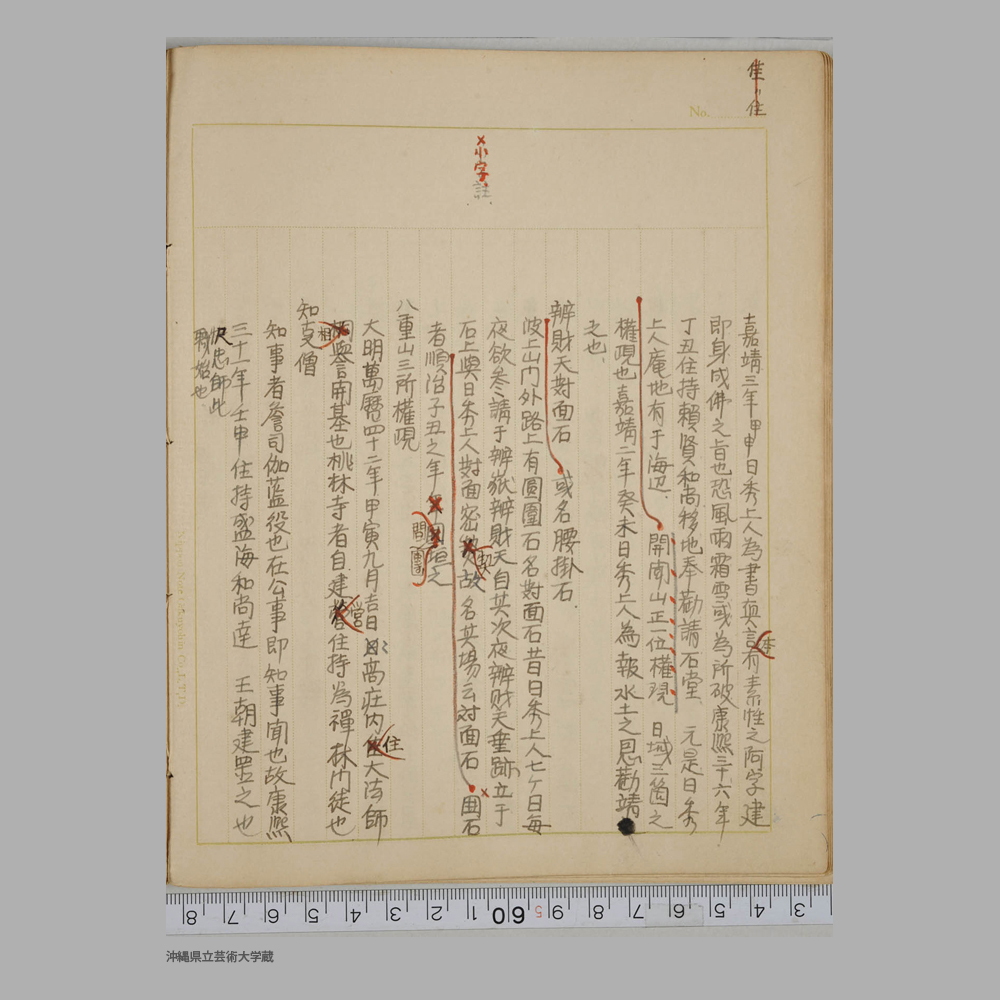 隹〃住
No.
×小字註
嘉靖三年甲申日秀上人為書與言本有素性之阿字建
即身成佛之旨也恐風雨霜雪或為所破康熙三十六年
丁丑住持頼賢和尚移地奉勸請石堂 元是日秀
上人庵地有于海辺 開南山正一位權現 日域三箇之
權現也嘉靖二年癸未日秀上人為報水土之恩勸靖
之也
辨財天對面石 或名腰掛石
波上山門外路上有圓圍石名對面石昔日秀上人七ケ日每
夜欲参請于辨嶽辨財天自其次夜辨財天垂跡立于
石上與日秀上人對面密契故名其場云対面石 囲石
者順治子丑之年 垣之
八重山三所權現
大明萬暦四十二年甲寅九月吉日 高庄内住大法師
相譽開基也桃林寺者自建営住持為禪林門徒也
知㕝僧
知事者詹司伽藍役也在公事即知事聞也故康熙
三十一年壬申住持盛海和尚達 王朝建置之也
快忠師此
職始也
8 7 6 5 4 3 2 1 60 5 9 8 7 6 5 4 3
沖縄県立芸術大学蔵